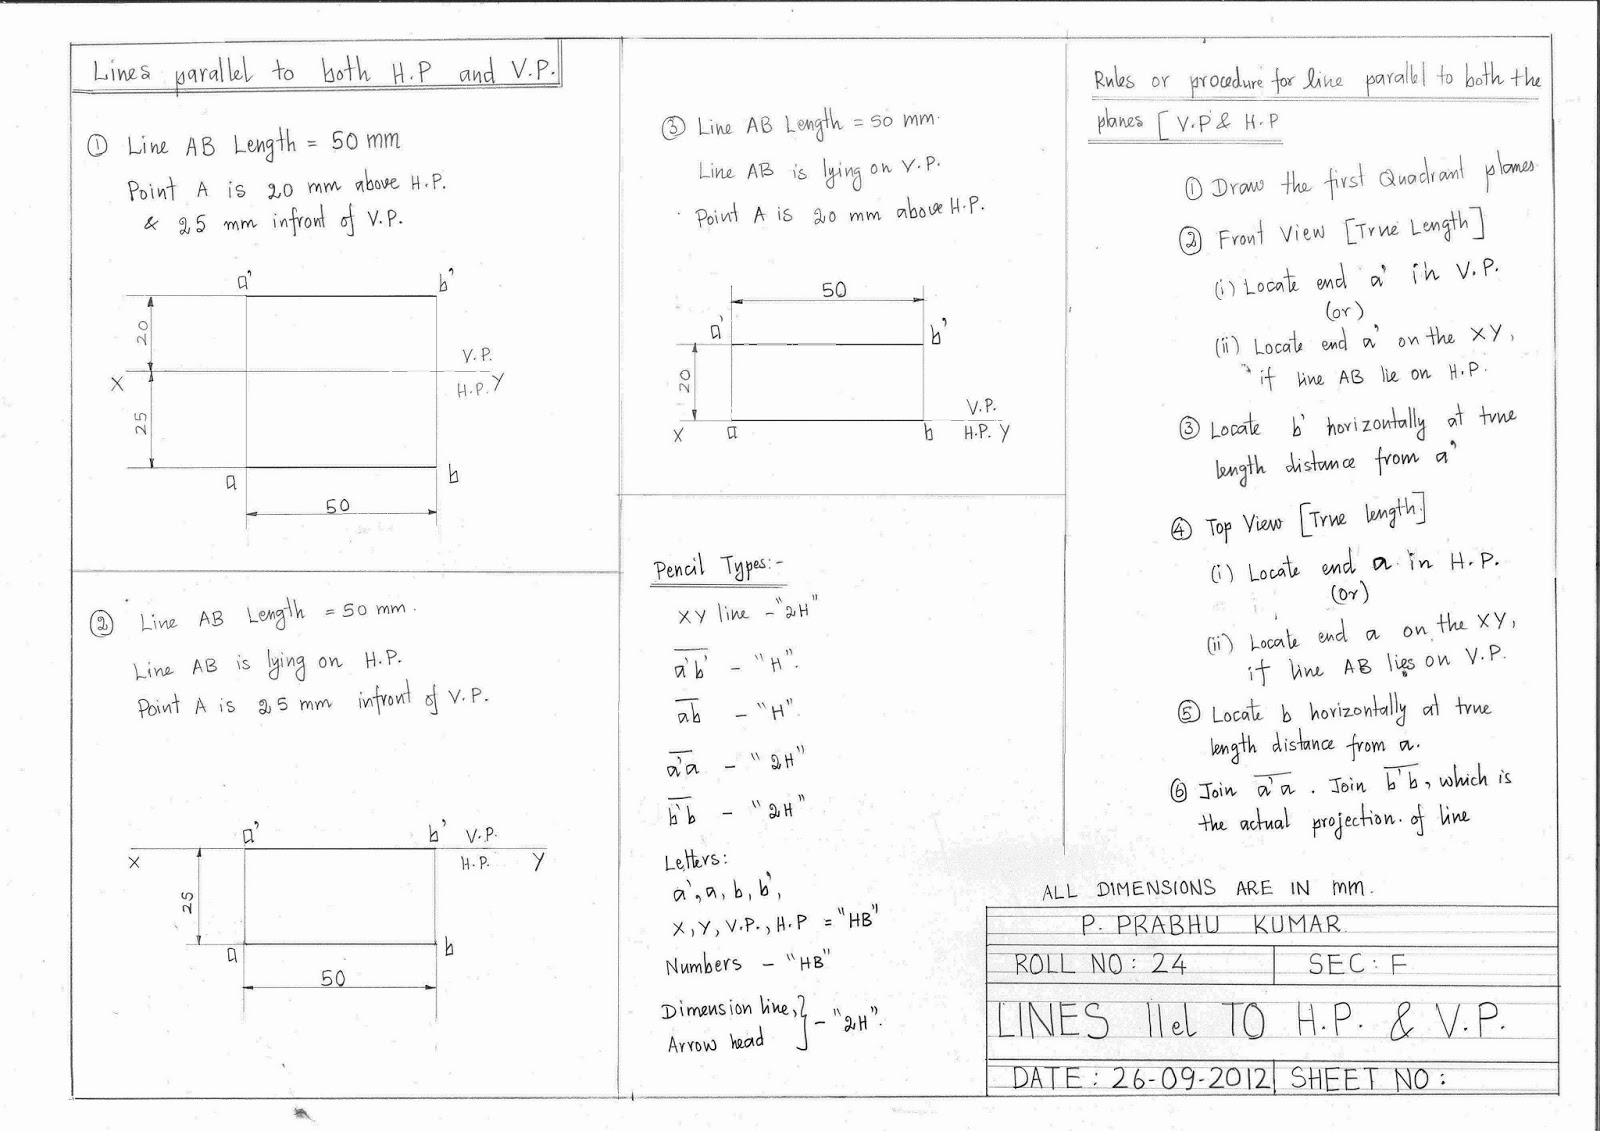 Lines parallel to both H.P and V.P.
① Line AB Length = 50 mm
Point A is 20 mm above H.P.
& 25 mm infront of V.P.
a' b'
20
V.P.
X H.P. Y
25
a b
50
② Line AB Length = 50 mm.
Line AB is lying on H.P.
Point A is 25 mm infront of V.P.
a' b' V.P.
X H.P. Y
25
a b
50
③ Line AB Length = 50 mm.
Line AB is lying on V.P.
Point A is 20 mm above H.P.
50
a' b'
20
V.P.
X a b H.P. Y
Pencil Types:-
XY line - "2H"
a'b' - "H".
ab - "H".
a'a - "2H"
b'b - "2H"
Letters:
a', a, b, b',
X, Y, V.P., H.P = "HB"
Numbers - "HB"
Dimension line, } - "2H".
Arrow head
Rules or procedure for line parallel to both the
planes [V.P & H.P
① Draw the first Quadrant planes
② Front View [True Length]
(i) Locate end a' in V.P.
(or)
(ii) Locate end a' on the XY,
if line AB lie on H.P.
③ Locate b' horizontally at true
length distance from a'
④ Top View [True length]
(i) Locate end a in H.P.
(or)
(ii) Locate end a on the XY,
if line AB lies on V.P.
⑤ Locate b horizontally at true
length distance from a.
⑥ Join a'a. Join b'b, which is
the actual projection. of line
ALL DIMENSIONS ARE IN mm.
P. PRABHU KUMAR.
ROLL NO: 24 SEC: F
LINES llel TO H.P. & V.P.
DATE: 26-09-2012 SHEET NO: